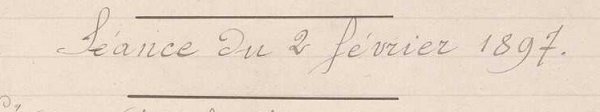 Séance du 2 février 1897.